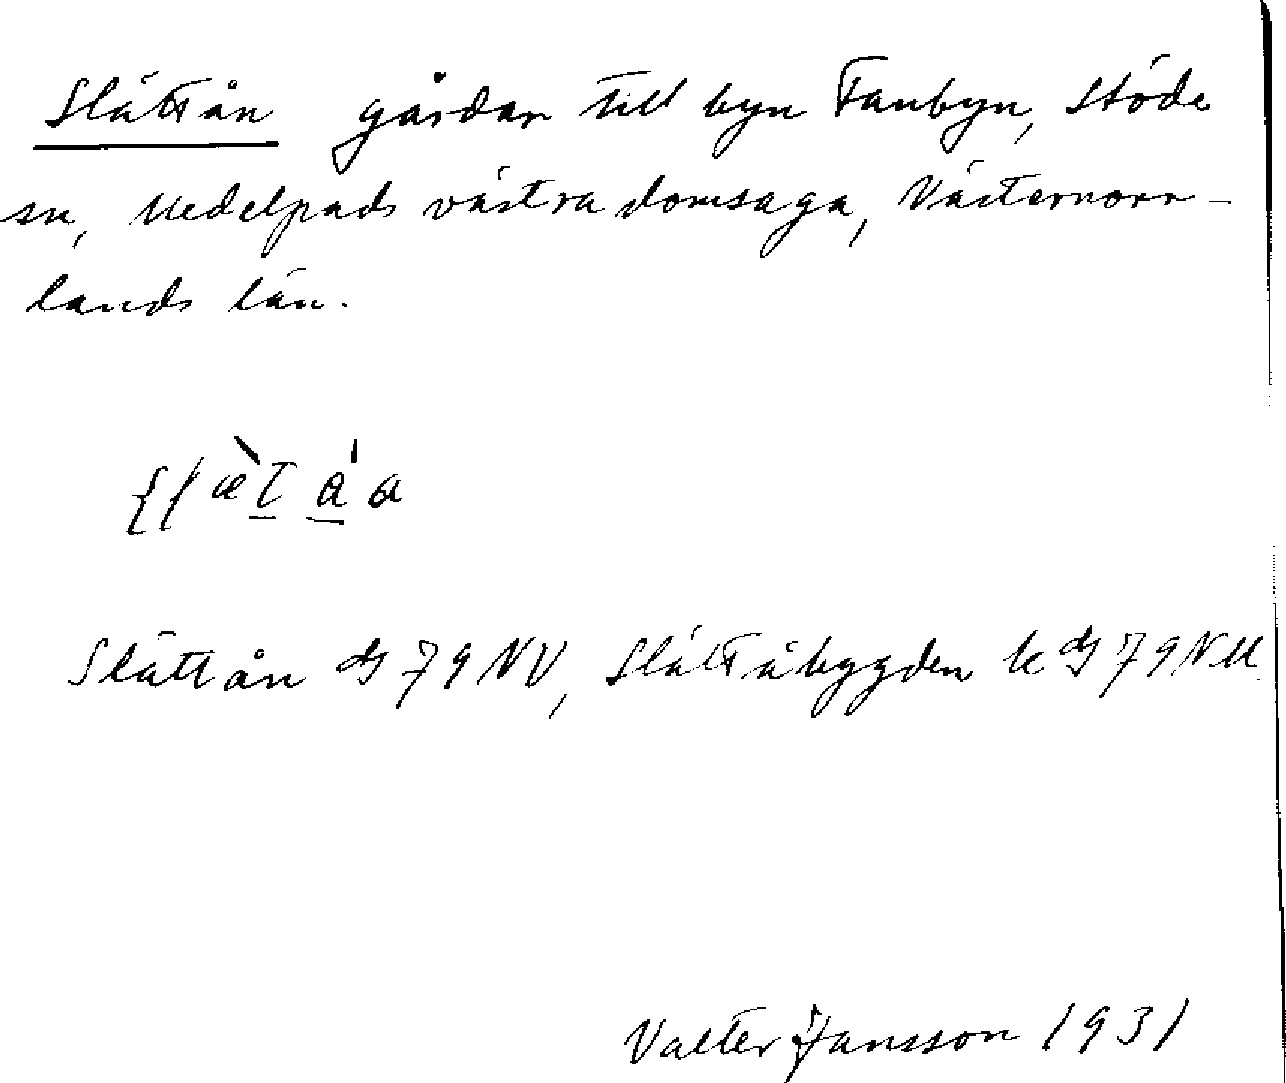 Slättån gårdar till byn Fanbyn, Stöde
sn, Medelpads västra domsaga, Västernorr-
lands län.
Slättån ds 79 NV, Slättåbygden k ds 79 NV
Valter Jansson 1931